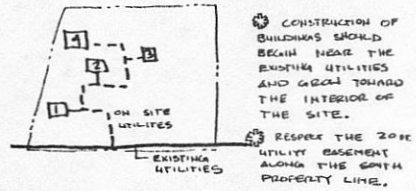 4
3
2
1
ON SITE
UTILITES
EXISTING
UTILITIES
CONSTRUCTION OF
BUILDINGS SHOULD
BEGIN NEAR THE
EXISTING UTILITIES
AND GROW TOWARD
THE INTERIOR OF
THE SITE.
RESPECT THE 20FT
UTILITY EASEMENT
ALONG THE SOUTH
PROPERTY LINE.